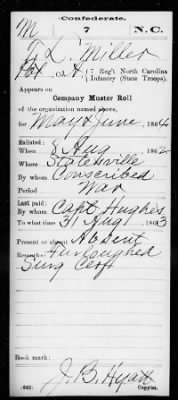 Confederate.
M 7 N.C.
T. L. Miller
Pvt, Co. A, (7 Reg't North Carolina
Infantry (State Troops).
Appears on
Company Muster Roll
of the organization named above,
for May & June, 1864
Enlisted:
When 8 Aug, 1862
Where Statesville
By whom Conscribed
Period War
Last paid:
By whom Capt Hughes
To what time 31 Aug, 1863
Present or absent Absent
Remarks: Furloughed
Surg Certf
Book mark:
J. B. Hyatt
(642) Copyist.